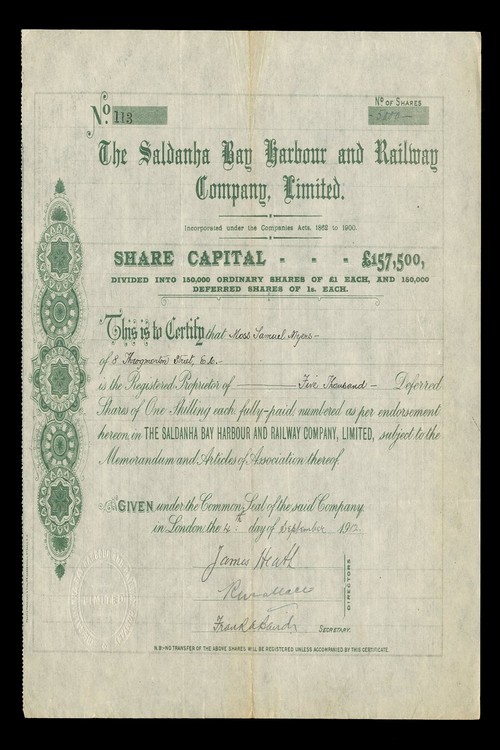 No. 113
No OF SHARES
5000
The Saldanha Bay Harbour and Railway
Company, Limited.
Incorporated under the Companies Acts, 1862 to 1900.
SHARE CAPITAL - - - £157,500,
DIVIDED INTO 150,000 ORDINARY SHARES OF £1 EACH, AND 150,000
DEFERRED SHARES OF 1s. EACH.
This is to Certify that Moss Samuel Myers
of 8 Throgmorton Street, E.C.
is the Registered Proprietor of Five Thousand Deferred
Shares of One Shilling each, fully-paid, numbered as per endorsement
hereon, in THE SALDANHA BAY HARBOUR AND RAILWAY COMPANY, LIMITED, subject to the
Memorandum and Articles of Association thereof.
GIVEN under the Common Seal of the said Company,
in London the 4th day of September 190
James Heath
DIRECTORS
Frank
SECRETARY.
N.B—NO TRANSFER OF THE ABOVE SHARES WILL BE REGISTERED UNLESS ACCOMPANIED BY THIS CERTIFICATE.